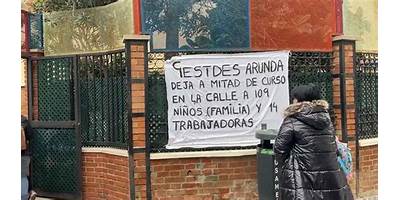 GESTDES ARUNDA
DEJA A MITAD DE CURSO
EN LA CALLE A 109
NIÑOS (FAMILIA) Y 14
TRABAJADORAS.